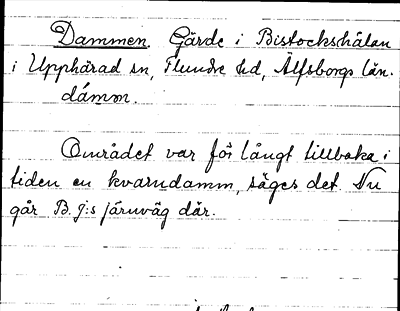 Dammen. Gärde i Bistockshålan
i Upphärad sn, Flundre hd, Älfsborgs län.
dámm.
Området var för långt tillbaka i
tiden en kvarndamm, säges det. Nu
går B. J:s järnväg där.